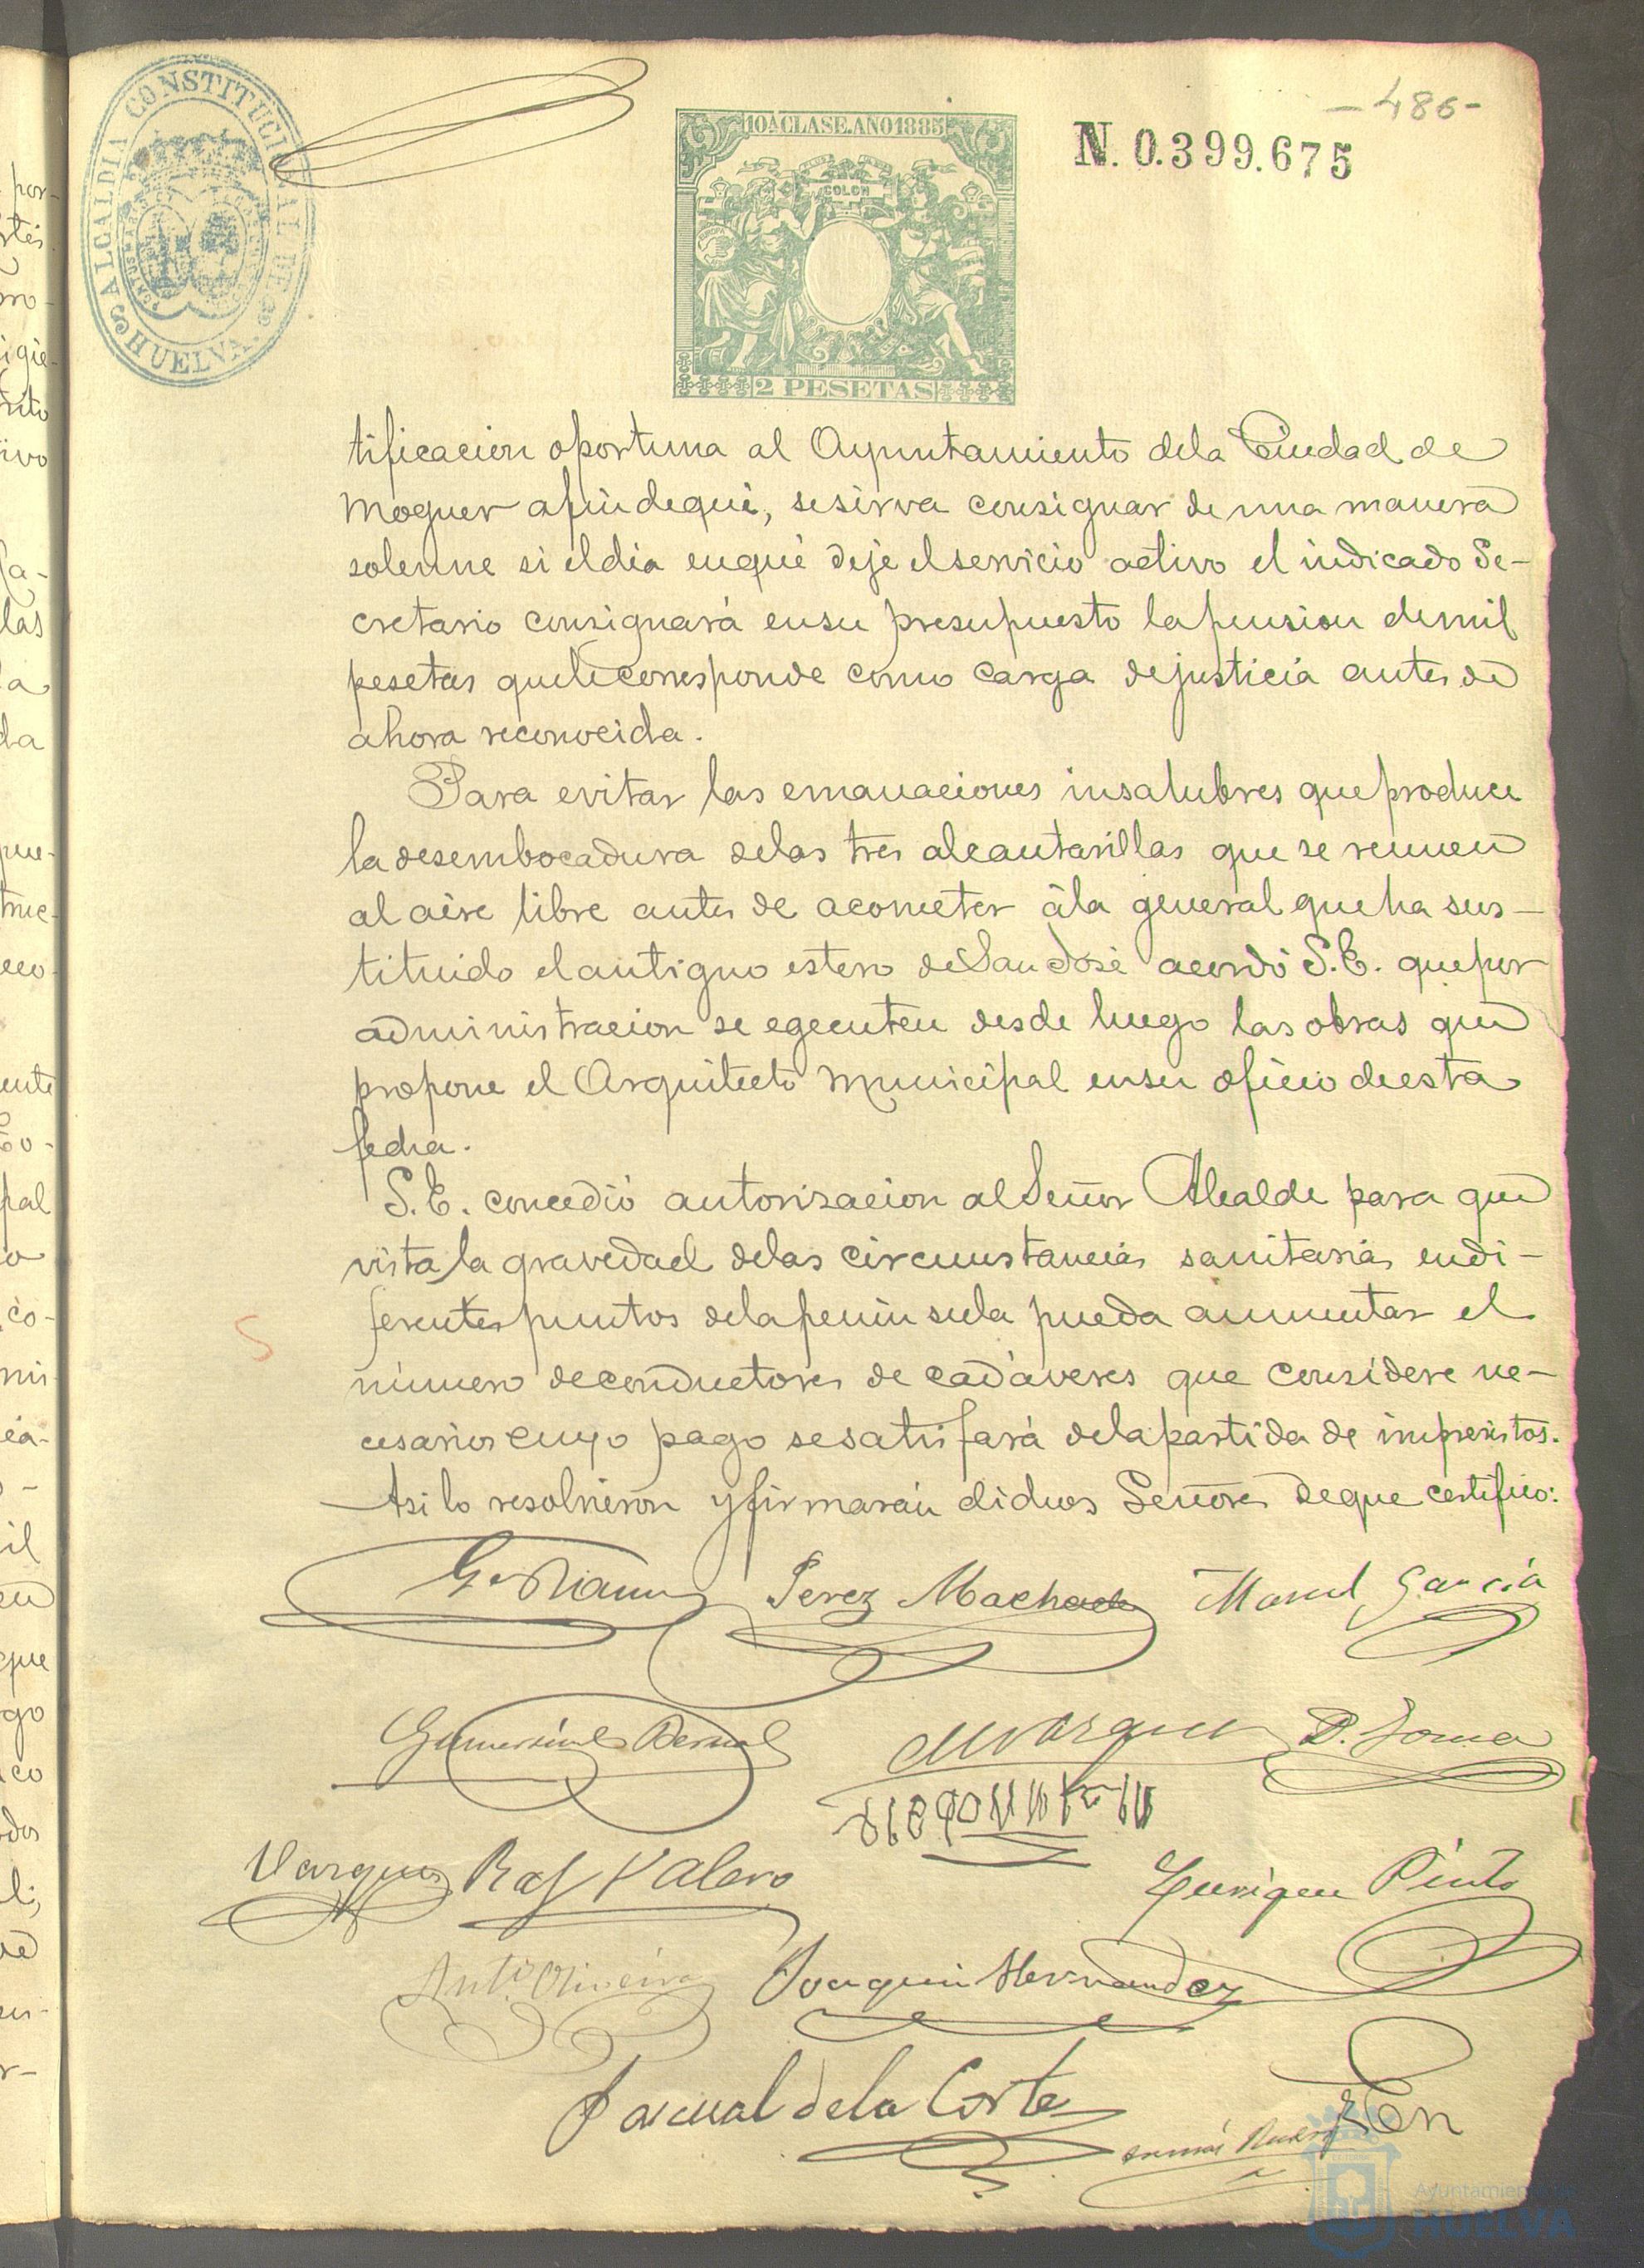 -486-
ALCALDIA CONSTITUCIONAL DE HUELVA
10ª CLASE. AÑO 1885
N. 0.399.675
COLON
EUROPA
2 PESETAS
tificacion oportuna al Ayuntamiento dela Ciudad de
Moguer afin deque, sesirva consignar de una manera
solemne si eldia enque deje elservicio activo el indicado Se-
cretario consignará ensu presupuesto lapension demil
pesetas quelecorresponde como carga dejusticia antes de
ahora reconocida.
Para evitar las emanaciones insalubres queproduce
la desembocadura delas tres alcantarillas que se reunen
al aire libre antes de acometer ála general que ha sus-
tituido elantiguo estero deSan José acordó S.E. quepor
administracion se egecuten desde luego las obras que
propone el Arquitecto Municipal ensu oficio deesta
fecha.
S.E. concedió autorizacion alSeñor Alcalde para que
vista la gravedad delas circunstancias sanitarias endi-
ferentes puntos delapeninsula pueda aumentar el
número deconductores de cadáveres que considere ne-
cesarios cuyo pago sesatisfará delapartida de imprevistos.
Asi lo resolvieron yfirmarán dichos Señores deque certifico:
Perez Machado Manuel García
Gumersindo Bernal MVazquez
Vargas Raf Valero
Enrique Pinto
Antº Oliveira Joaquin Hernandez
Pascual dela Corte
Ayuntamiento de
HUELVA